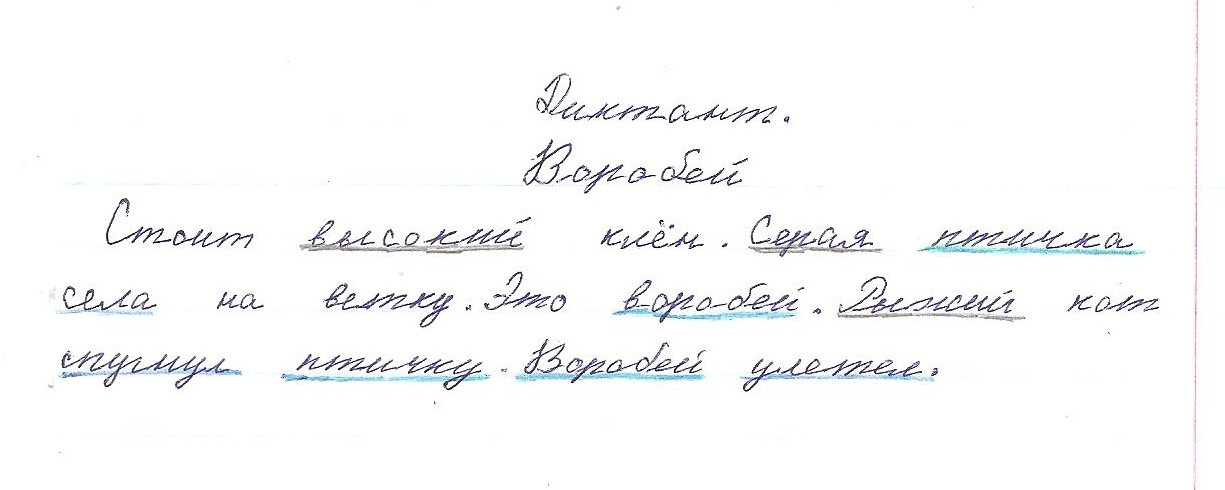 Диктант.
Воробей
Стоит высокий клён. Серая птичка
села на ветку. Это воробей. Рыжий кот
спугнул птичку. Воробей улетел.